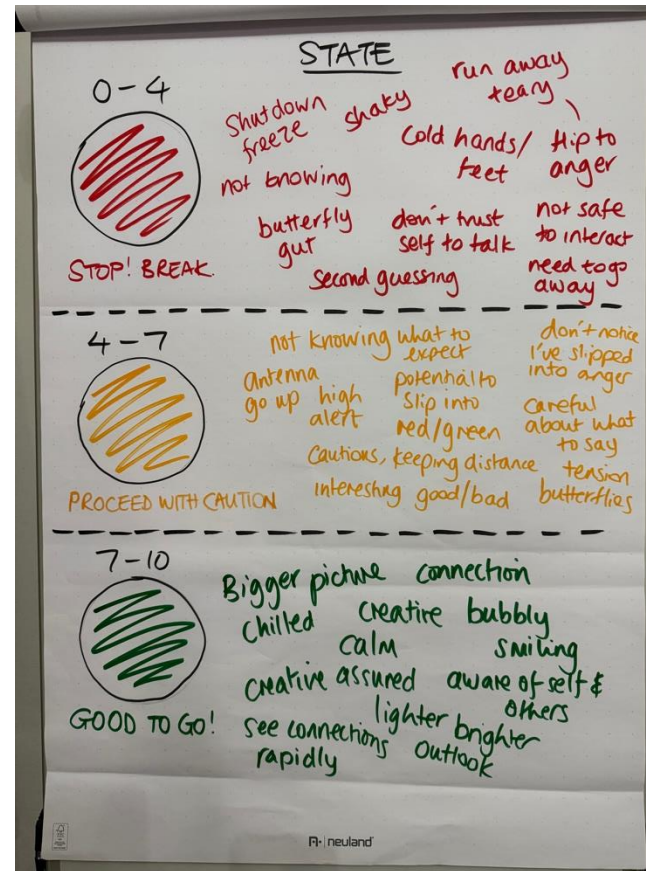 STATE
0-4
run away
teary
Shutdown
freeze
shaky
cold hands/
feet
flip to
anger
not knowing
butterfly
gut
don't trust
self to talk
not safe
to interact
STOP! BREAK.
second guessing
need to go
away
4-7
not knowing what to
expect
don't notice
I've slipped
into anger
antenna
go up
high
alert
potential to
slip into
red/green
careful
about what
to say
cautious, keeping distance
tension
PROCEED WITH CAUTION
interesting good/bad
butterflies
7-10
Bigger picture
connection
chilled
creative
bubbly
calm
smiling
creative
assured
aware of self &
others
GOOD TO GO!
see connections
rapidly
lighter brighter
outlook
neuland